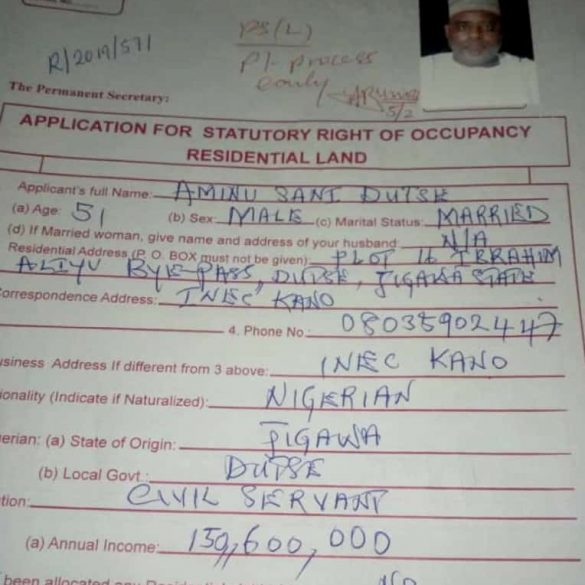 R/2019/571
PS(L)
Pl. process
early
5/2
The Permanent Secretary:
APPLICATION FOR STATUTORY RIGHT OF OCCUPANCY
RESIDENTIAL LAND
Applicant's full Name: AMINU SANI DUTSE
(a) Age: 51 (b) Sex MALE (c) Marital Status: MARRIED
(d) If Married woman, give name and address of your husband: N/A
Residential Address (P. O. BOX must not be given): PLOT 16 IBRAHIM
ALIYU BYE-PASS, DUTSE, JIGAWA STATE
Correspondence Address: INEC KANO
4. Phone No.: 08035902447
usiness Address If different from 3 above: INEC KANO
ionality (Indicate if Naturalized): NIGERIAN
gerian: (a) State of Origin: JIGAWA
(b) Local Govt.: DUTSE
tion: CIVIL SERVANT
(a) Annual Income: 159,600,000
been allocated any